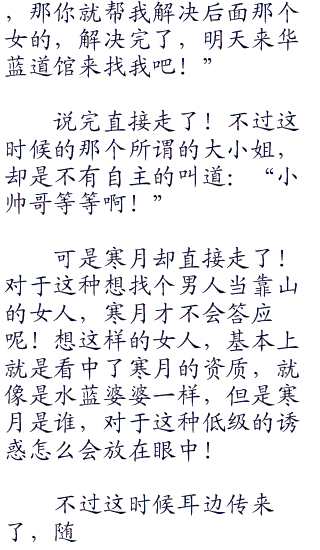 ，那你就帮我解决后面那个
女的，解决完了，明天来华
蓝道馆来找我吧！”
说完直接走了！不过这
时候的那个所谓的大小姐，
却是不有自主的叫道：“小
帅哥等等啊！”
可是寒月却直接走了！
对于这种想找个男人当靠山
的女人，寒月才不会答应
呢！想这样的女人，基本上
就是看中了寒月的资质，就
像是水蓝婆婆一样，但是寒
月是谁，对于这种低级的诱
惑怎么会放在眼中！
不过这时候耳边传来
了，随